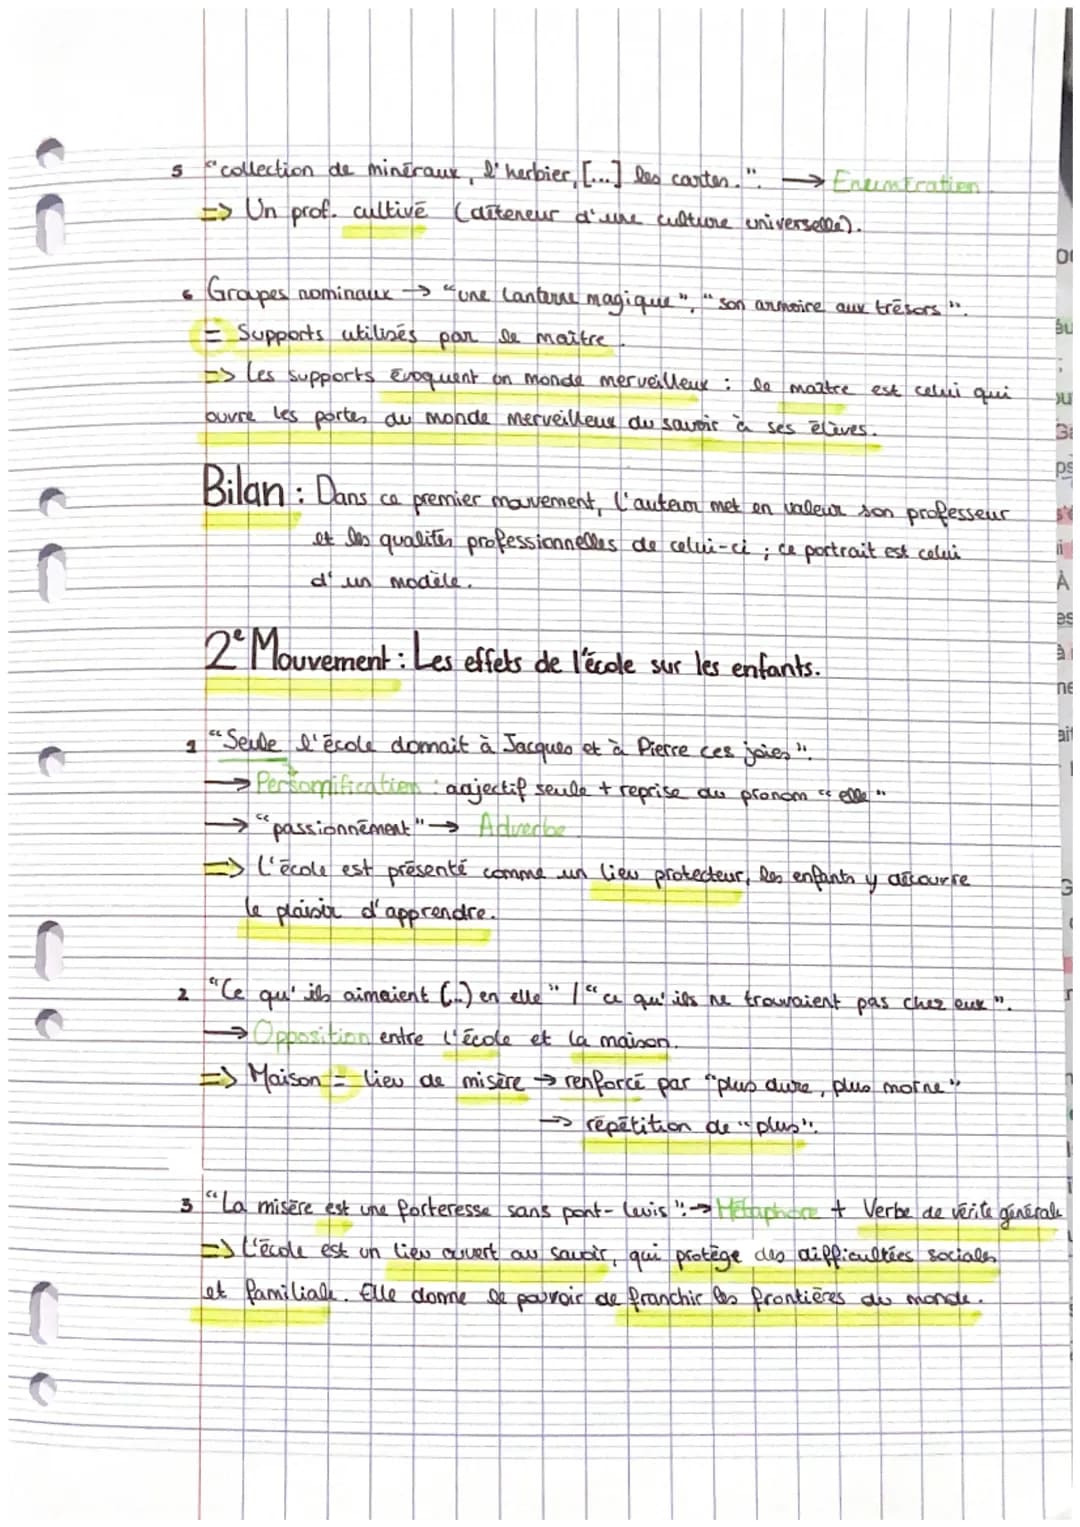 5 "collection de minéraux, l'herbier, [...] les cartes.". → Enumération.
=> Un prof. cultivé (déteneur d'une culture universelle).
6 Groupes nominaux → "une lanterne magique", "son armoire aux trésors".
= Supports utilisés par le maître.
=> Les supports évoquent un monde merveilleux : le maître est celui qui
ouvre les portes du monde merveilleux du savoir à ses élèves.
Bilan : Dans ce premier mouvement, l'auteur met en valeur son professeur
et les qualités professionnelles de celui-ci ; ce portrait est celui
d'un modèle.
2e Mouvement : Les effets de l'école sur les enfants.
1 "Seule l'école donnait à Jacques et à Pierre ces joies".
→ Personnification : adjectif seule + reprise du pronom "elle"
→ "passionnément" → Adverbe.
=> L'école est présenté comme un lieu protecteur, les enfants y découvre
le plaisir d'apprendre.
2 "Ce qu'ils aimaient (...) en elle" / "ce qu'ils ne trouvaient pas chez eux".
→ Opposition entre l'école et la maison.
=> Maison = lieu de misère → renforcé par "plus dure, plus morne"
→ répétition de "plus".
3 "La misère est une forteresse sans pont-levis". → Métaphore + Verbe de vérité générale
=> L'école est un lieu ouvert au savoir, qui protège des difficultées sociales
et familiale. Elle donne le pouvoir de franchir les frontières du monde.